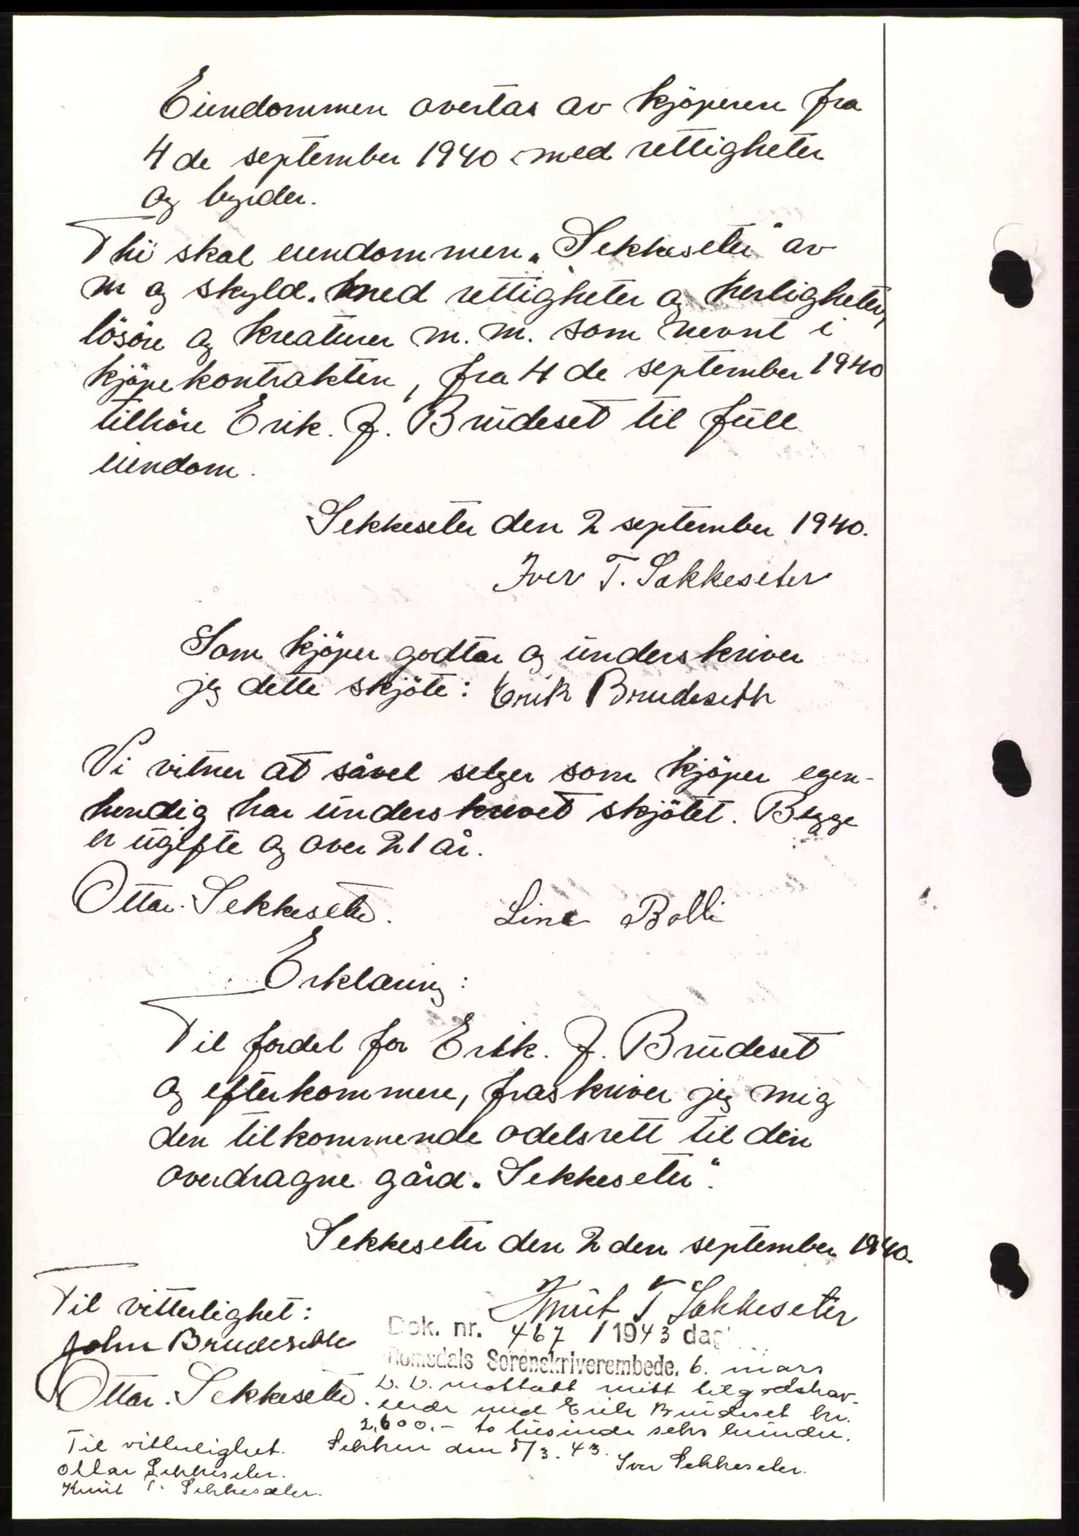 Eiendommen overtas av kjöperen fra
4 de september 1940 med rettigheter
og byrder.
Thi skal eiendommen „Sekkeseter" av
m og skyld. med rettigheter og herligheter,
lösöre og kreaturer m. m. som nevnt i
kjöpekontrakten, fra 4 de september 1940
tilhöre Erik. J. Brudeset til full
eiendom.
Sekkeseter den 2 september 1940.
Iver T. Sekkeseter
Som kjöper godtar og underskriver
jeg dette skjöte: Erik Brudeseth
Vi vitner at såvel selger som kjöper egen-
hendig har underskrevet skjötet. Begge
er ugifte og over 21 år.
Ottar. Sekkeseter. Line Bolli
Erklæring:
Til fordel for Erik. J. Brudeset
og efterkommere, fraskriver jeg mig
den tilkommende odelsrett til den
overdragne gård „Sekkeseter".
Sekkeseter den 2 den september 1940.
Til vitterlighet: Knut T Sekkeseter
John Brudeseth
Dok. nr. 467 / 1943 dag
Romsdals Sorenskriverembede. 6. mars
Ottar. Sekkeseter.
D. D. mottatt mitt tilgodehav-
ende med Erik Brudeset kr.
2,600.- to tusinde seks hundre.
Sekken den 5/3. 43. Iver Sekkeseter.
Til vitterlighet.
Ottar Sekkeseter.
Knut T. Sekkeseter.